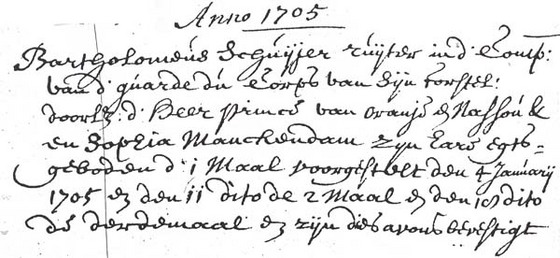 Anno 1705
Bartholomeus Schuijfer ruijter in d' Comp:
van d' guarde du Corps van Sijn vorstel:
doorl: d' Heer prince van oranje & Nassou &
en Sophia Manckendam zyn hare Egts-
geboden d' 1 Maal voorgestelt den 4 January
1705 en den 11 dito de 2 Maal en den dito
de derdemaal en zijn dies avons bevestigt